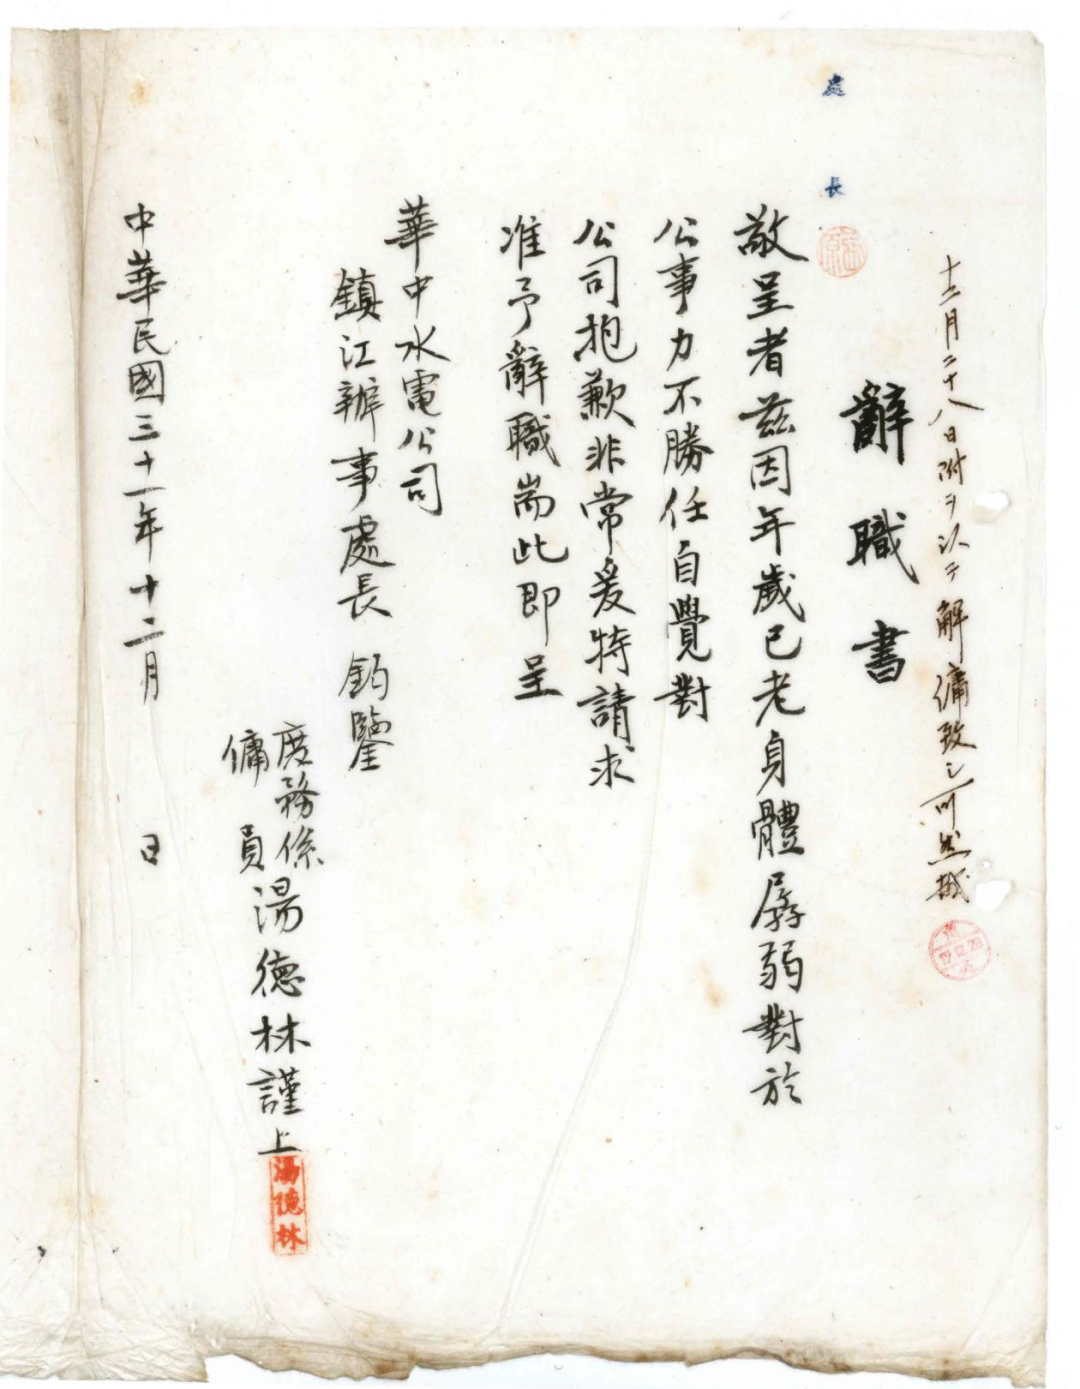 處長
十二月二十八日附ヲ以テ解傭致シ可然哉
19.12.28
辭職書
敬呈者茲因年歲已老身體孱弱對於
公事力不勝任自覺對
公司抱歉非常爰特請求
准予辭職耑此即呈
華中水電公司
鎮江辦事處長 鈞鑒
度務係
傭員
湯德林謹上
湯德林
中華民國三十一年十二月 日